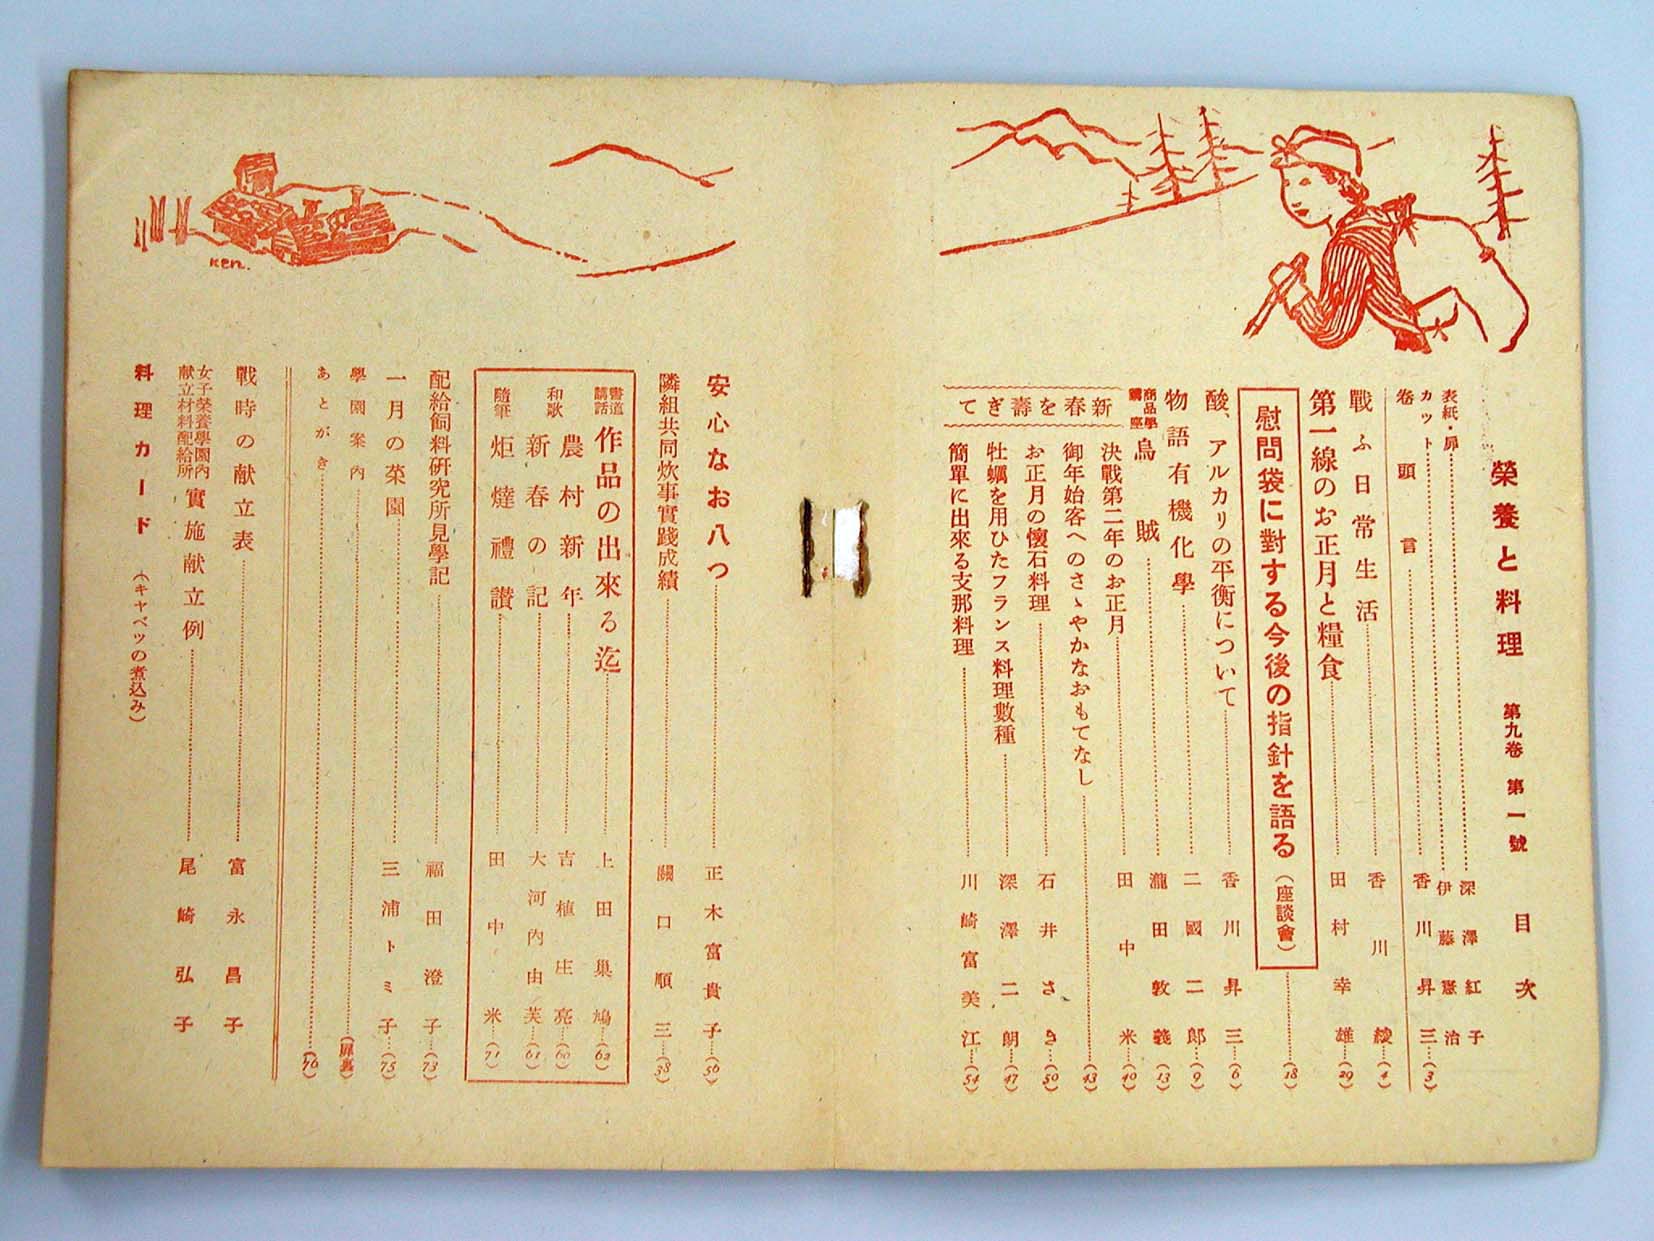 榮養と料理 第九卷 第一號 目次
表紙・扉……深澤紅子
カット……伊藤憲治
卷頭言……香川昇三…(3)
戰ふ日常生活……香川綾…(4)
第一線のお正月と糧食……田村幸雄…(29)
慰問袋に對する今後の指針を語る（座談會）……(18)
酸、アルカリの平衡について……香川昇三…(6)
物語有機化學……二國二郎…(9)
商品學講座 烏賊……瀧田敦義…(13)
新春を壽ぎて
決戰第二年のお正月……田中米…(40)
御年始客へのさゝやかなおもてなし……(43)
お正月の懷石料理……石井さき…(50)
牡蠣を用ひたフランス料理數種……深澤二朗…(47)
簡單に出來る支那料理……川崎富美江…(54)
安心なお八つ……正木富貴子…(56)
隣組共同炊事實踐成績……關口順三…(38)
書道講話 作品の出來る迄……上田巣鳩…(62)
和歌 農村新年……吉植庄亮…(60)
新春の記……大河内由芙…(61)
隨筆 炬燵禮讃……田中米…(71)
配給飼料研究所見學記……福田澄子…(73)
一月の菜園……三浦トミ子…(75)
學園案内……(扉裏)
あとがき……(76)
戰時の献立表……富永昌子
女子榮養學園内献立材料配給所 實施献立例……尾崎弘子
料理カード（キャベツの煮込み）
Ken.